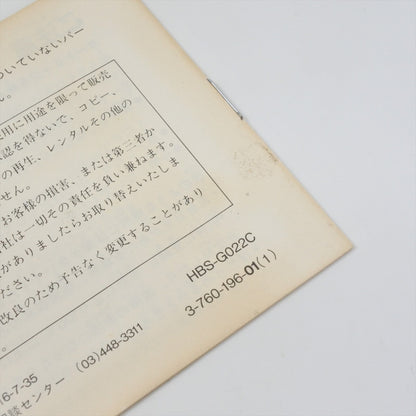 ついていないパー
ん。
使用に用途を限って販売
承認を得ないで、コピー、
の再生、レンタルその他の
せん。
お客様の損害、または第三者か
社は一切その責任を負い兼ねます。
がありましたらお取り替えいたしま
ださい。
改良のため予告なく変更することがあり
。
HBS-G022C
3-760-196-01(1)
6-7-35
センター (03)448-3311